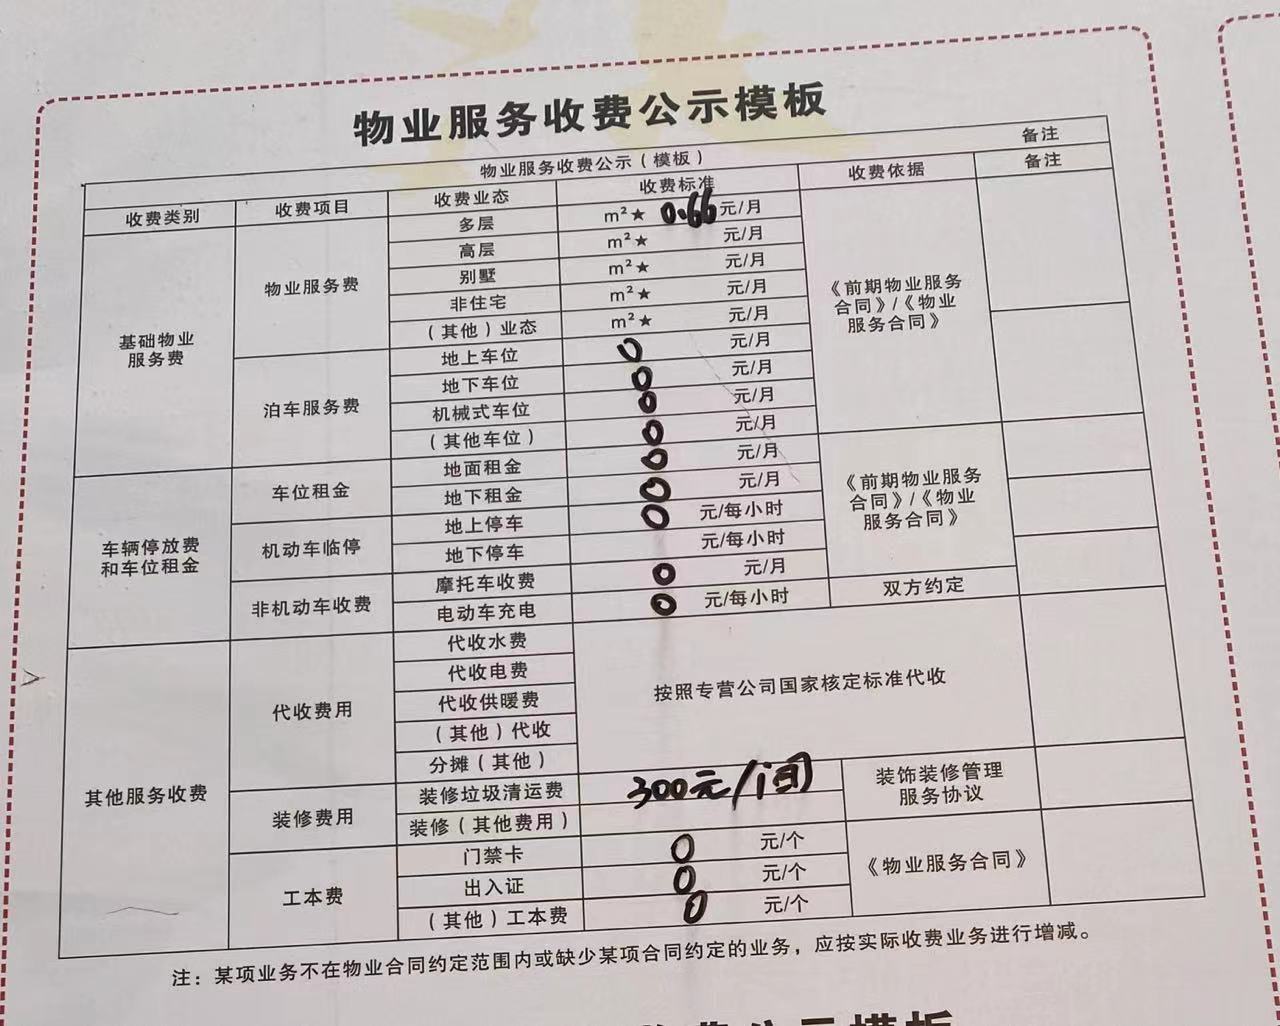 物业服务收费公示模板
物业服务收费公示（模板） 备注
收费类别 收费项目 收费业态 收费标准 收费依据 备注
基础物业服务费 物业服务费 多层 m²★ 0.66 元/月 《前期物业服务合同》/《物业服务合同》
高层 m²★ 元/月
别墅 m²★ 元/月
非住宅 m²★ 元/月
（其他）业态 m²★ 元/月
泊车服务费 地上车位 0 元/月
地下车位 0 元/月
机械式车位 0 元/月
（其他车位） 0 元/月
车辆停放费和车位租金 车位租金 地面租金 0 元/月 《前期物业服务合同》/《物业服务合同》
地下租金 0 元/月
机动车临停 地上停车 0 元/每小时
地下停车 元/每小时
非机动车收费 摩托车收费 0 元/月
电动车充电 0 元/每小时 双方约定
其他服务收费 代收费用 代收水费 按照专营公司国家核定标准代收
代收电费
代收供暖费
（其他）代收
分摊（其他）
装修费用 装修垃圾清运费 300元/间 装饰装修管理服务协议
装修（其他费用）
工本费 门禁卡 0 元/个 《物业服务合同》
出入证 0 元/个
（其他）工本费 0 元/个
注：某项业务不在物业合同约定范围内或缺少某项合同约定的业务，应按实际收费业务进行增减。